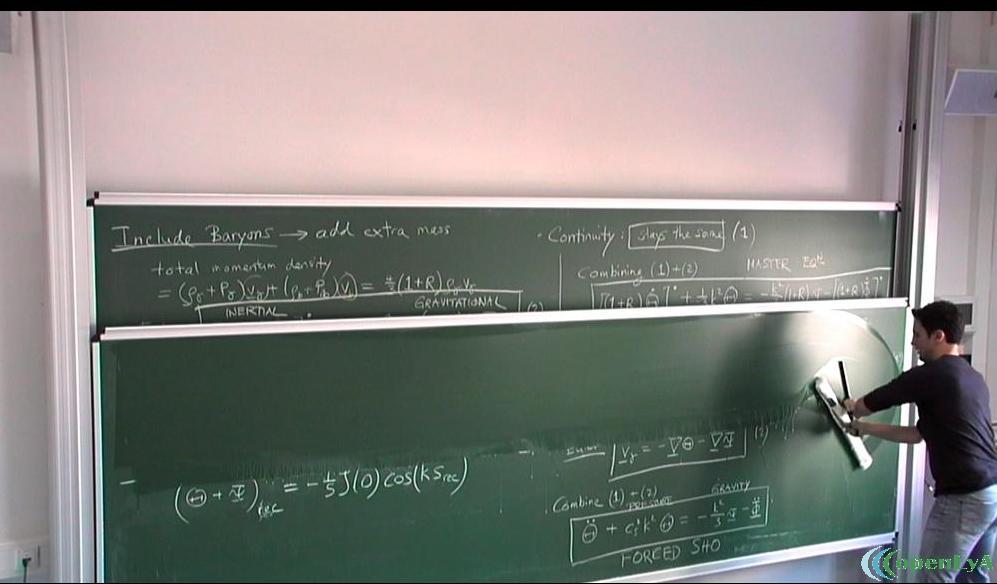 Include Baryons → add extra mass
total momentum density
= (ρ_γ + P_γ) v_γ + (ρ_b + P_b) v_b = 4/3 (1+R) ρ_γ v_γ
INERTIAL GRAVITATIONAL (2)
· Continuity: stays the same (1)
Combining (1)+(2) MASTER EQⁿ
[(1+R) Θ̇]˙ + 1/3 k² Θ = -k²/3 (1+R) Ψ - [(1+R) Φ̇]˙
(Θ + Ψ)_rec = -1/5 ζ(0) cos(k s_rec)
v_γ = -∇Θ - ∇Ψ (2)
Combine (1)+(2) PRESSURE GRAVITY
Θ̈ + c_s² k² Θ = -k²/3 Ψ - Φ̈
FORCED SHO
openEyA